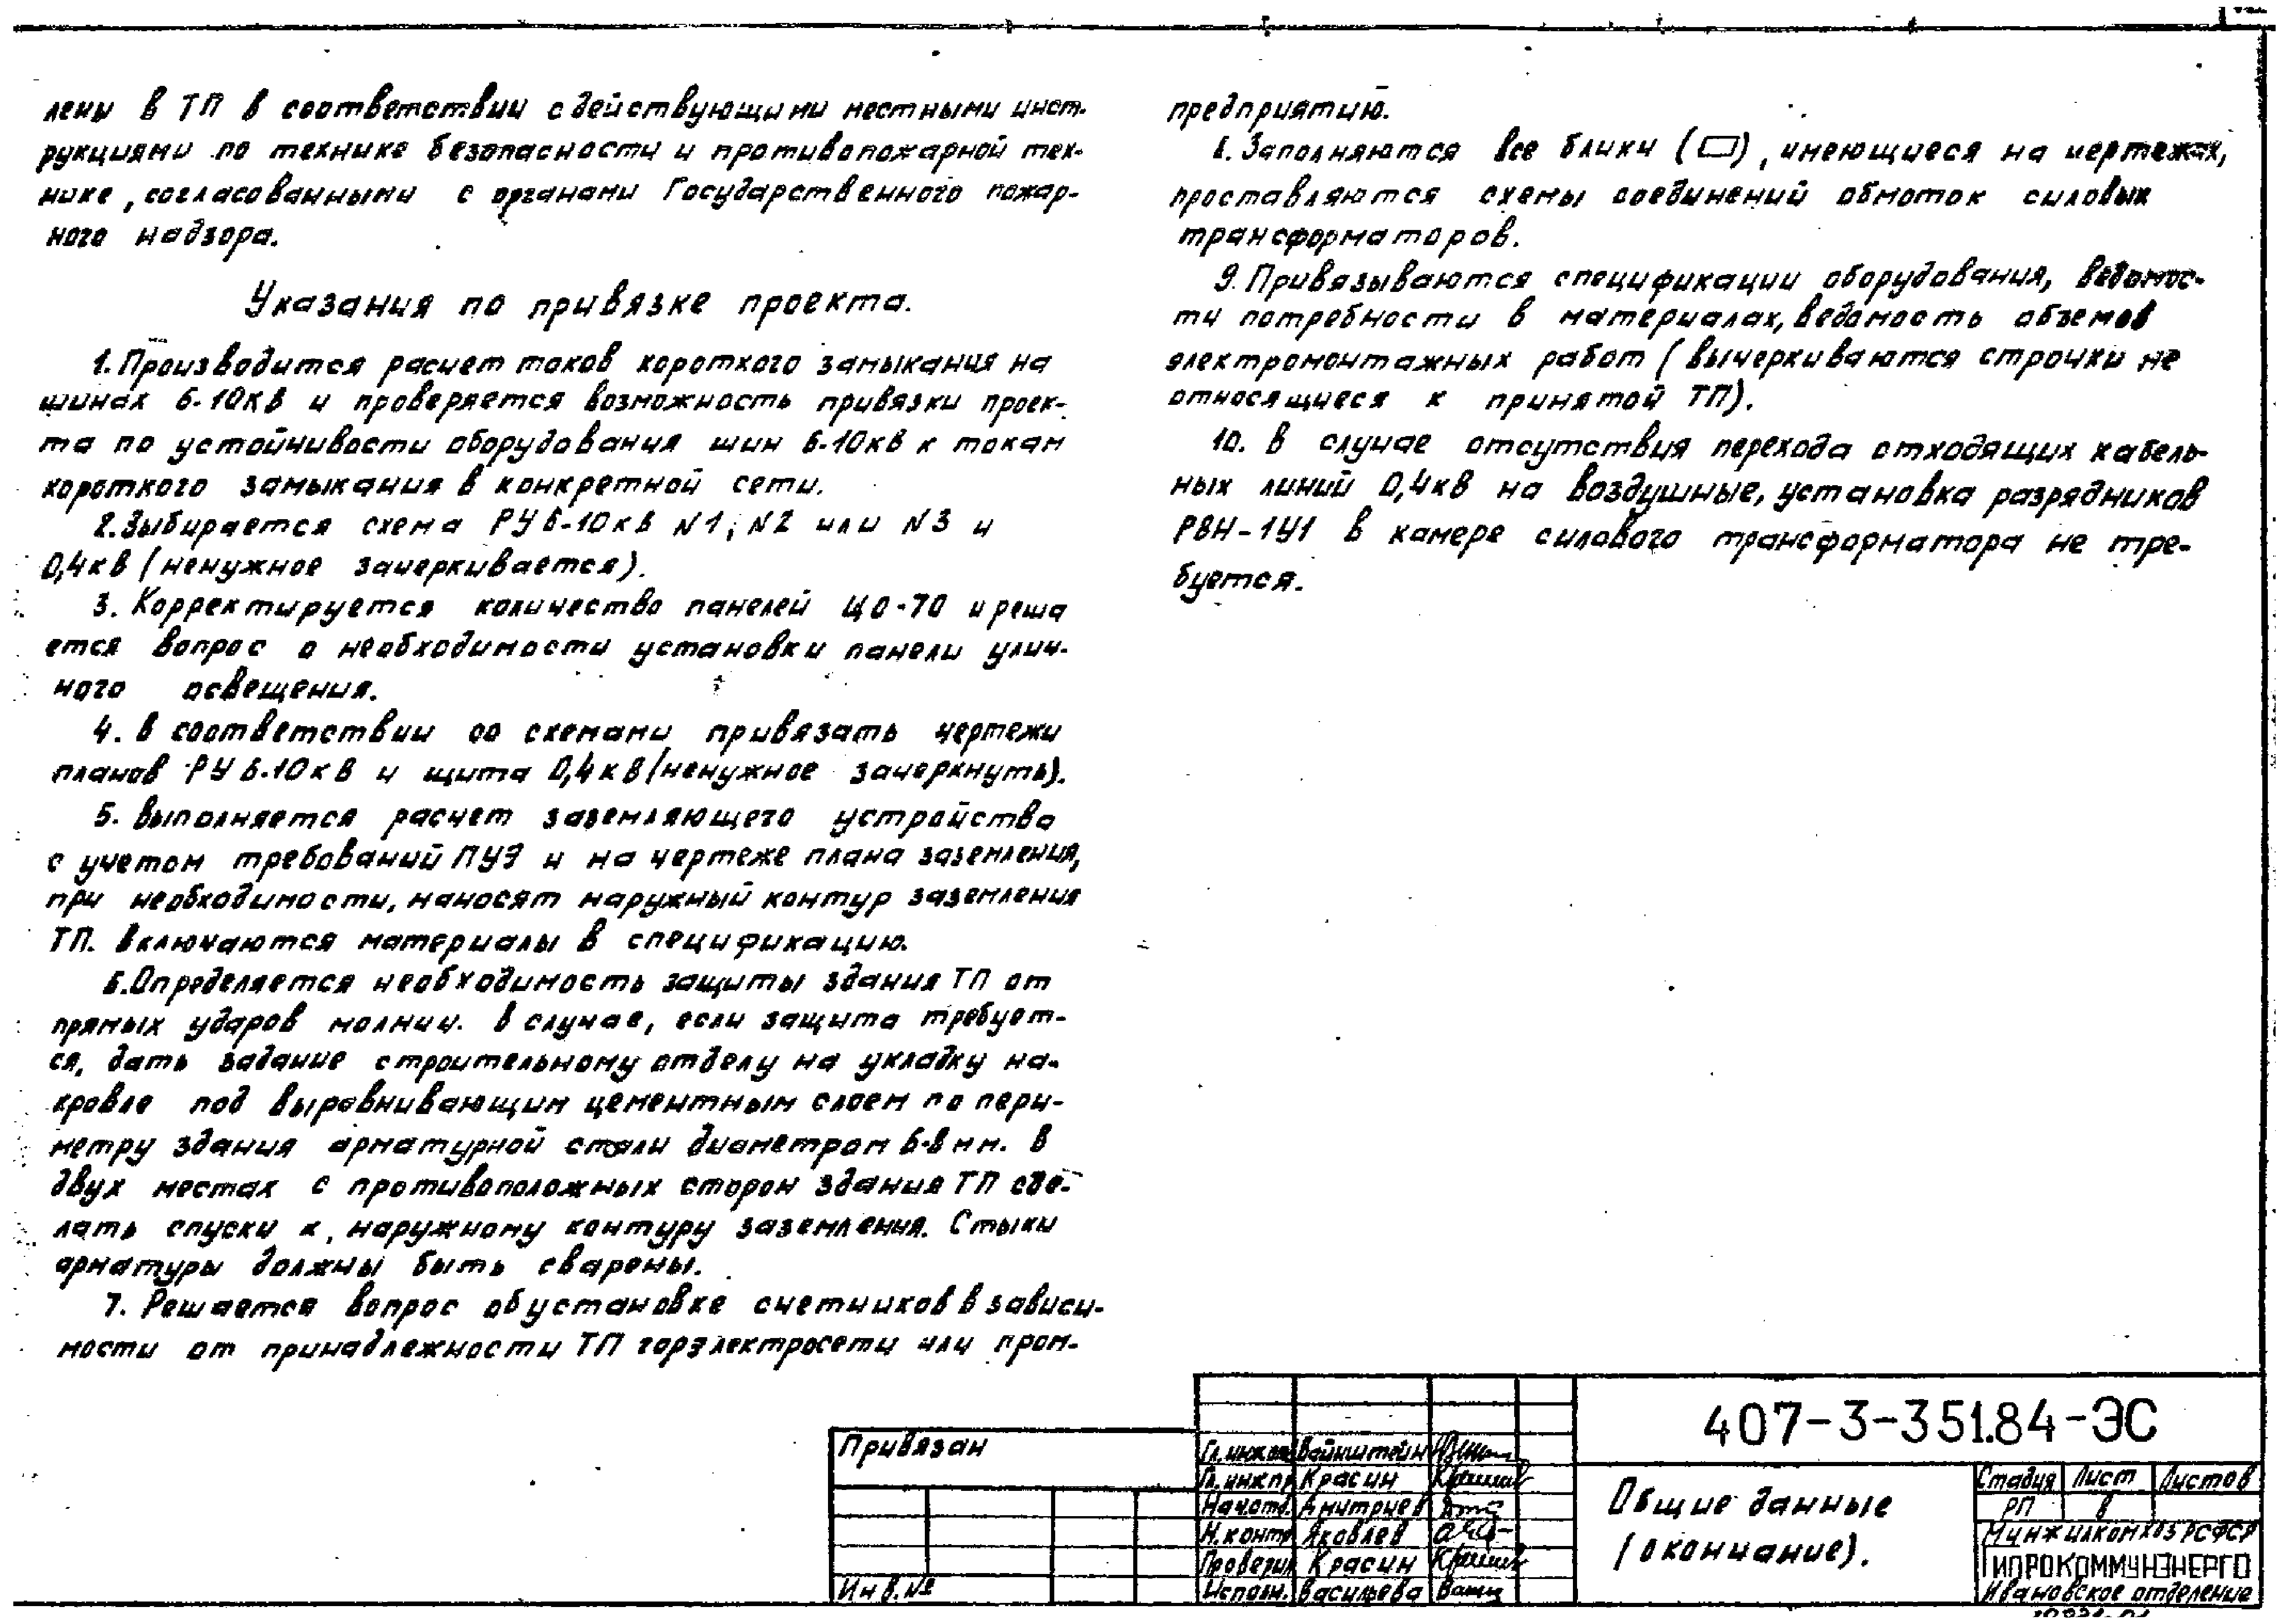 лены в ТП в соответствии с действующими местными инст-
рукциями по технике безопасности и противопожарной тех-
нике, согласованными с органами Государственного пожар-
ного надзора.
Указания по привязке проекта.
1. Производится расчет токов короткого замыкания на
шинах 6-10кВ и проверяется возможность привязки проек-
та по устойчивости оборудования шин 6-10кВ к токам
короткого замыкания в конкретной сети.
2. Выбирается схема РУ 6-10кВ N1, N2 или N3 и
0,4кВ (ненужное зачеркивается).
3. Корректируется количество панелей ЩО-70 и реша
ется вопрос о необходимости установки панели улич-
ного освещения.
4. В соответствии со схемами привязать чертежи
планов РУ 6-10кВ и щита 0,4кВ (ненужное зачеркнуть).
5. Выполняется расчет заземляющего устройства
с учетом требований ПУЭ и на чертеже плана заземления,
при необходимости, наносят наружный контур заземления
ТП. Включаются материалы в спецификацию.
6. Определяется необходимость защиты здания ТП от
прямых ударов молнии. В случае, если защита требует-
ся, дать задание строительному отделу на укладку на
кровле под выравнивающим цементным слоем по пери-
метру здания арматурной стали диаметром 6-8 мм. В
двух местах с противоположных сторон здания ТП сде-
лать спуски к наружному контуру заземления. Стыки
арматуры должны быть сварены.
7. Решается вопрос об установке счетчиков в зависи-
мости от принадлежности ТП горэлектросети или пром-
предприятию.
8. Заполняются все блики (▭), имеющиеся на чертежах,
проставляются схемы соединений обмоток силовых
трансформаторов.
9. Привязываются спецификации оборудования, ведомос-
ти потребности в материалах, ведомость объемов
электромонтажных работ (вычеркиваются строчки не
относящиеся к принятой ТП).
10. В случае отсутствия перехода отходящих кабель-
ных линий 0,4кВ на воздушные, установка разрядников
РВН-1У1 в камере силового трансформатора не тре-
буется.
Привязан
Инв. №
Гл. инж. Вайнштейн
Гл. инж. пр. Красин
Нач. отд. Дмитриев
Н. контр. Яковлев
Проверил Красин
Исполн. Васильева
407-3-351.84-ЭС
Общие данные
(окончание).
Стадия Лист Листов
РП 8
Минжилкомхоз РСФСР
ГИПРОКОММУНЭНЕРГО
Ивановское отделение